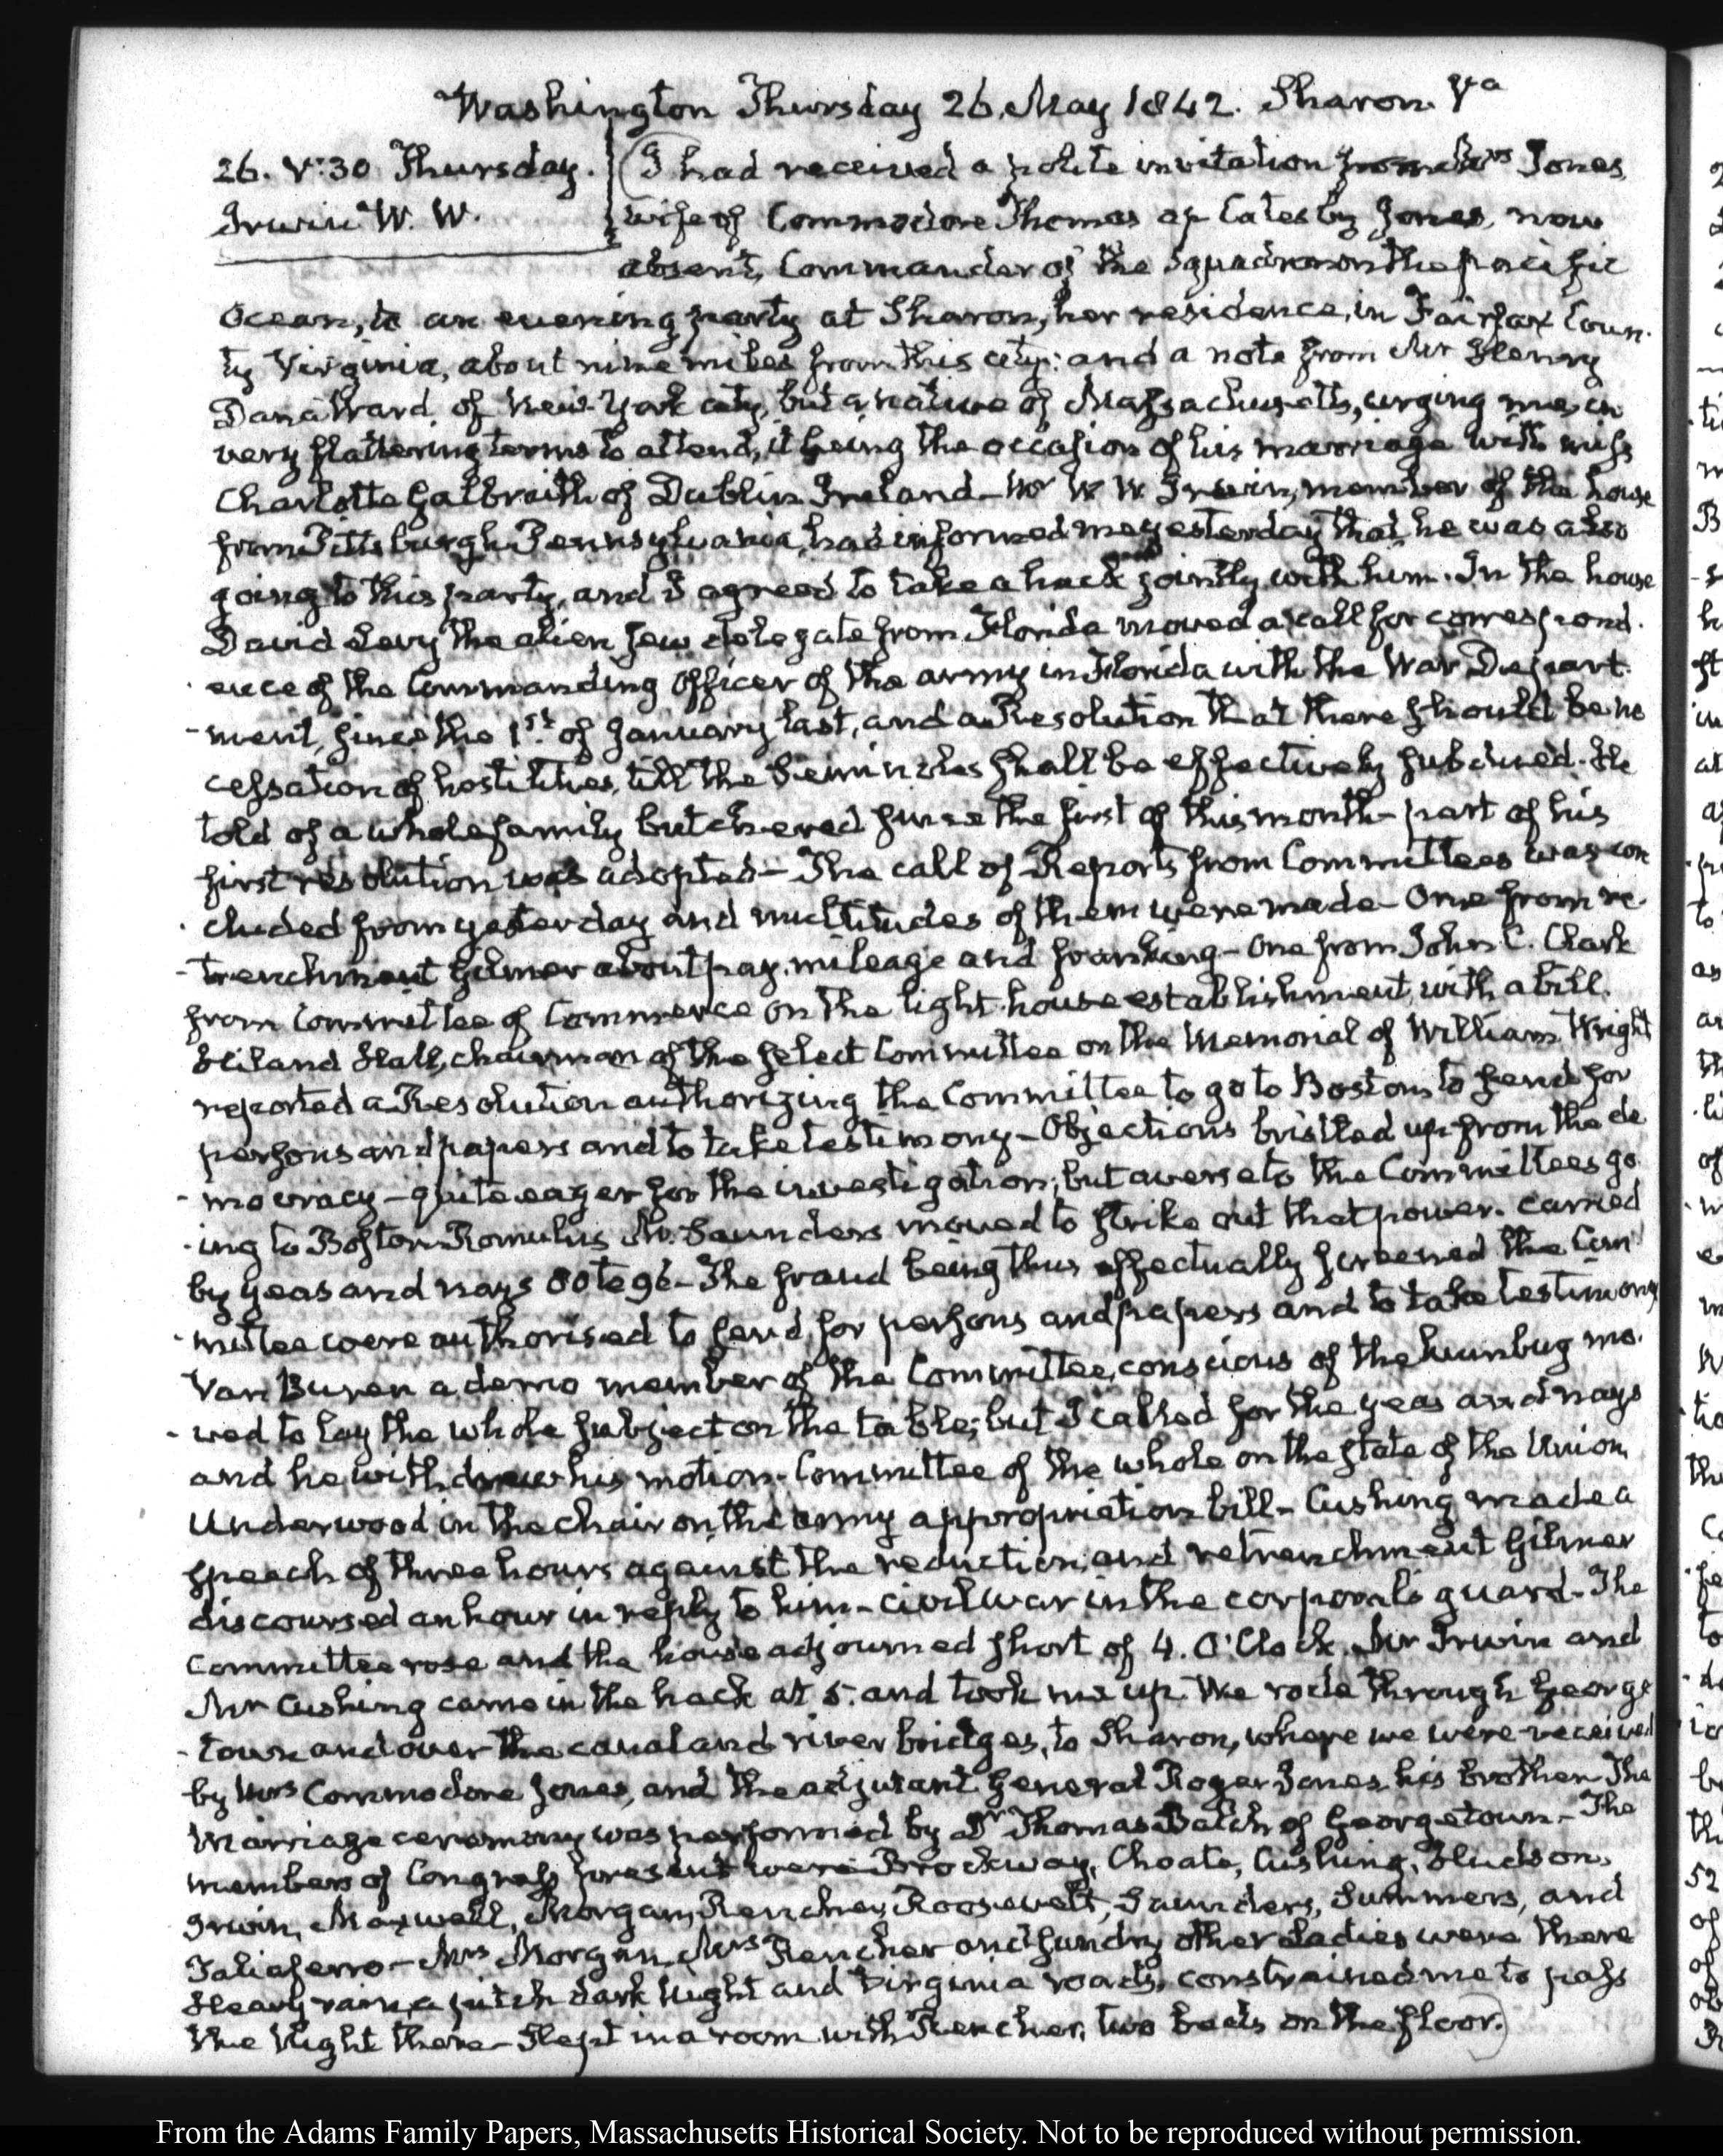 Washington Thursday 26. May 1842. Sharon. Va
26. V:30 Thursday.
Irwin W. W.
I had received a polite invitation from Mrs Jones,
wife of Commodore Thomas ap Catesby Jones, now
absent, Commander of the Squadron on the pacific
Ocean, to an evening party at Sharon, her residence, in Fairfax Coun-
ty Virginia, about nine miles from this city: and a note from Mr Henry
Dana Ward of New-York city, but a native of Massachusetts, urging me, in
very flattering terms to attend, it being the occasion of his marriage with miss
Charlotte Galbraith of Dublin Ireland – Mr W W Irwin, member of the house
from Pittsburgh Pennsylvania, had informed me yesterday that he was also
going to this party, and I agreed to take a hack jointly with him. In the house
David Levy the alien Jew delegate from Florida moved a call for correspond-
ence of the Commanding Officer of the army in Florida with the War Depart-
-ment, since the 1st of January last, and a Resolution that there should be no
cessation of hostilities, till the Seminoles shall be effectively subdued. He
told of a whole family butchered since the first of this month – part of his
first resolution was adopted – The call of Reports from Committees was con
cluded from yesterday and multitudes of them were made – One from re-
-trenchment Gilmer about pay, mileage and franking – One from John C. Clark
from Committee of Commerce on the light-house establishment, with a bill.
Hiland Hall, chairman of the select Committee on the Memorial of William Wright
reported a Resolution authorizing the Committee to go to Boston, to send for
persons and papers and to take testimony – Objections bristled up from the de
-mocracy – quite eager for the investigation; but averse to the Committees go-
-ing to Boston. Romulus M. Saunders moved to strike out that power. carried
by yeas and nays to – The fraud being thus effectually screened the Com
-mittee were authorised to send for persons and papers and to take testimony
Van Buren a demo member of the Committee, conscious of the humbug mo-
-ved to lay the whole subject on the table; but I called for the yeas and nays
and he withdrew his motion. Committee of the whole on the state of the Union
Underwood in the chair on the army appropriation bill – Cushing made a
speech of three hours against the reduction, and retrenchment Gilmer
discoursed an hour in reply to him – civil war in the corporal's guard – The
Committee rose and the house adjourned short of 4. O'Clock. Mr Irwin and
Mr Cushing came in the hack at 5. and took me up. We rode through George
-town and over the canal and river bridges, to Sharon, where we were received
by Mrs Commodore Jones, and the adjutant General Roger Jones his brother – The
Marriage ceremony was performed by Dr Thomas Balch of Georgetown – The
members of Congress present were Brockway, Choate, Cushing, Hudson,
Irwin, Maxwell, Morgan, Rencher, Roosevelt, Saunders, Summers, and
Taliaferro – Mrs Morgan, Mrs Rencher and sundry other Ladies were there
Heavy rain, a pitch dark Night and Virginia roads, constrained me to pass
the Night there – Slept in a room with Rencher, two beds on the floor.
From the Adams Family Papers, Massachusetts Historical Society. Not to be reproduced without permission.